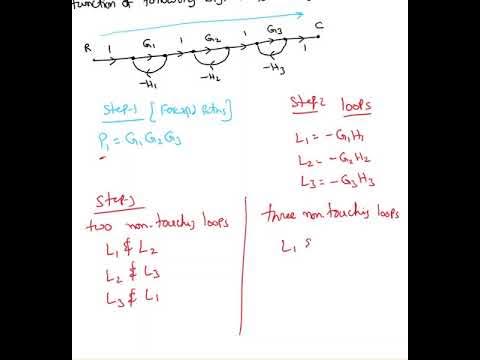 function of following
R 1 G₁ 1 G₂ 1 G₃ 1 C
-H₁ -H₂ -H₃
Step-1 [Forward Paths]
P₁ = G₁G₂G₃
Step2 loops
L₁ = -G₁H₁
L₂ = -G₂H₂
L₃ = -G₃H₃
Step-3
two non-touching loops
L₁ & L₂
L₂ & L₃
L₃ & L₁
three non touching loops
L₁